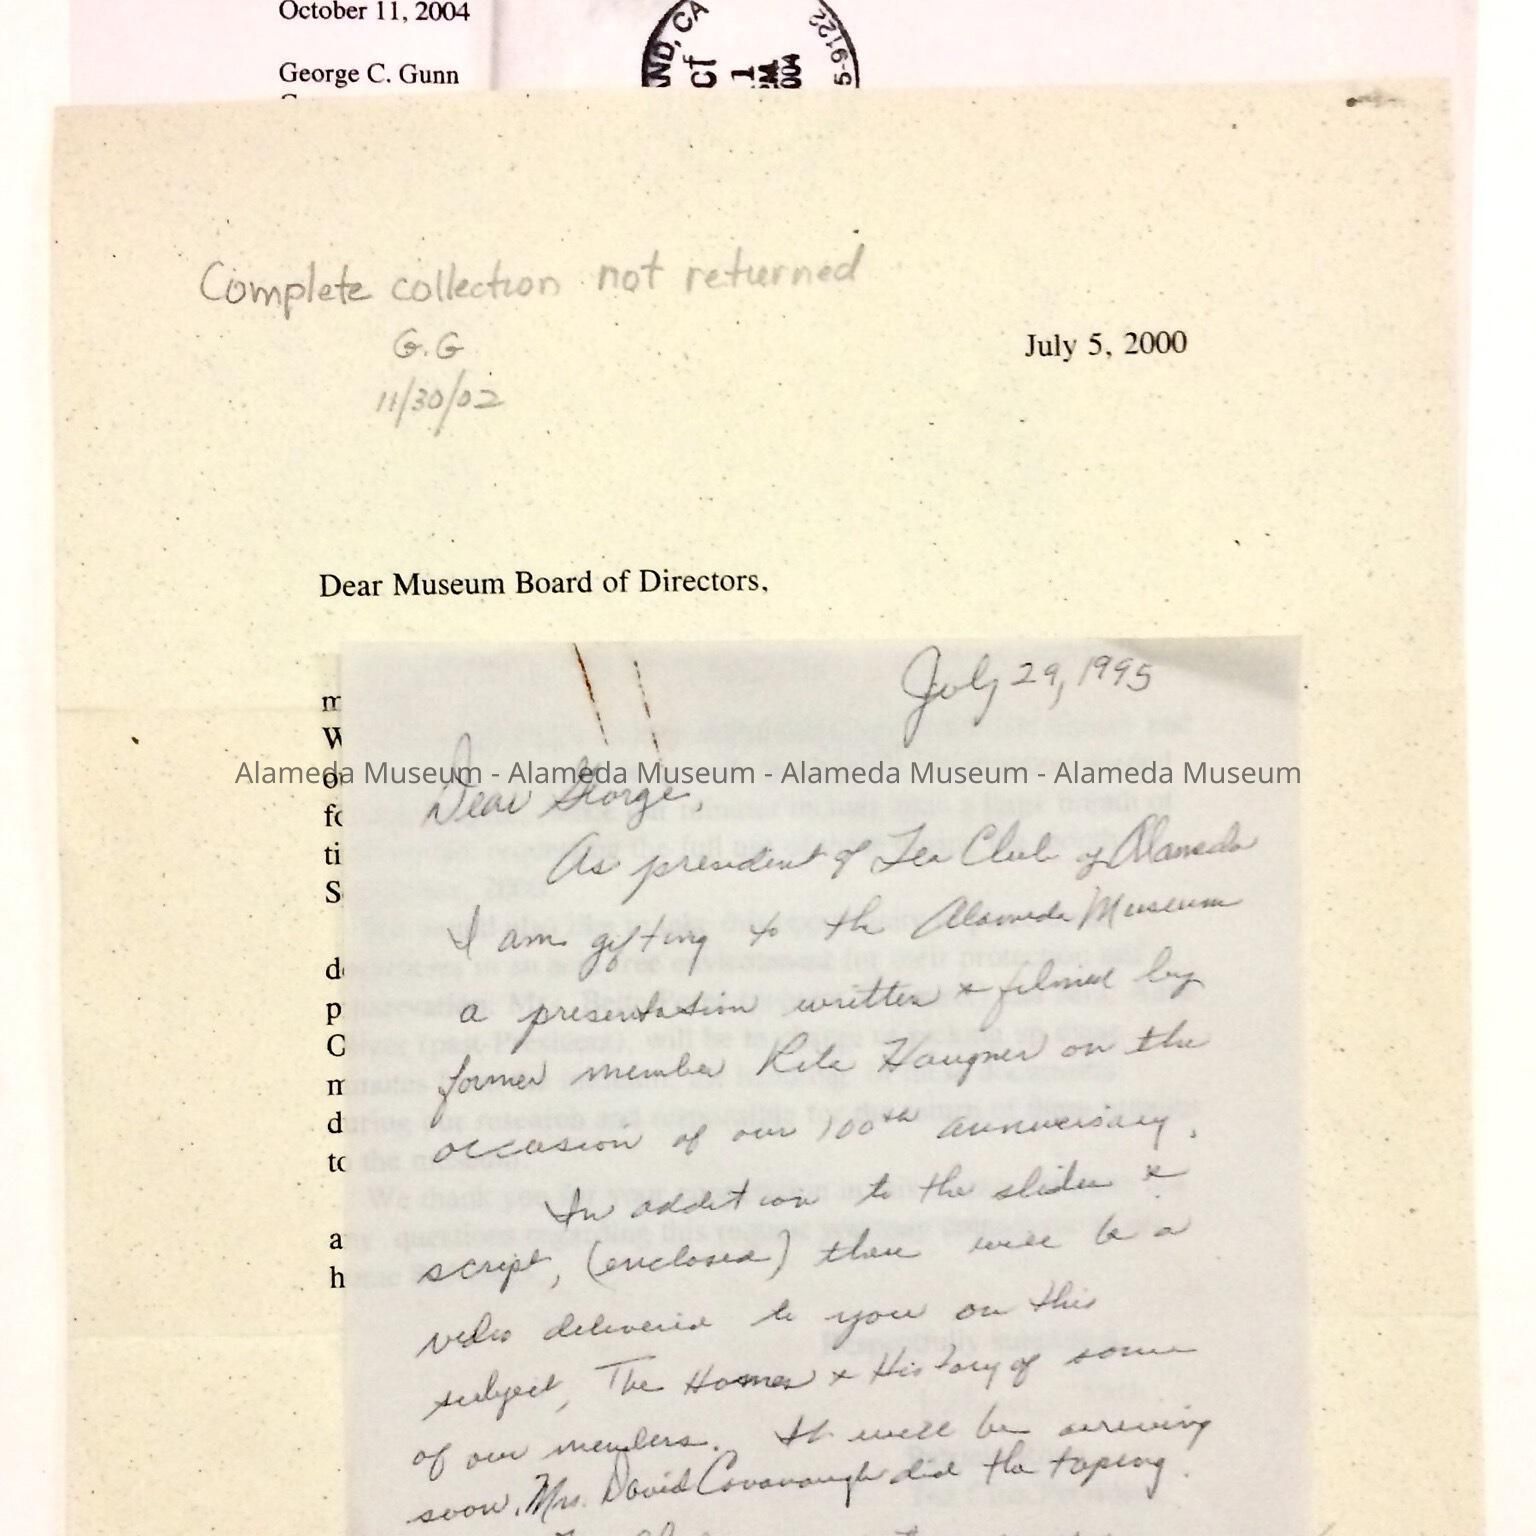 October 11, 2004
George C. Gunn
ND, CA
1
PM
004
5-9122
Complete collection not returned
G.G
11/30/02
July 5, 2000
Dear Museum Board of Directors,
July 29, 1995
Alameda Museum - Alameda Museum - Alameda Museum - Alameda Museum
Dear George,
As president of Tea Club of Alameda
I am gifting to the Alameda Museum
a presentation written & filmed by
former member Rita Haugner on the
occasion of our 100th anniversary.
In addition to the slides &
script, (enclosed) there will be a
video delivered to you on this
subject, The Homes & History of some
of our members. It will be arriving
soon. Mrs. David Cavanaugh did the taping.